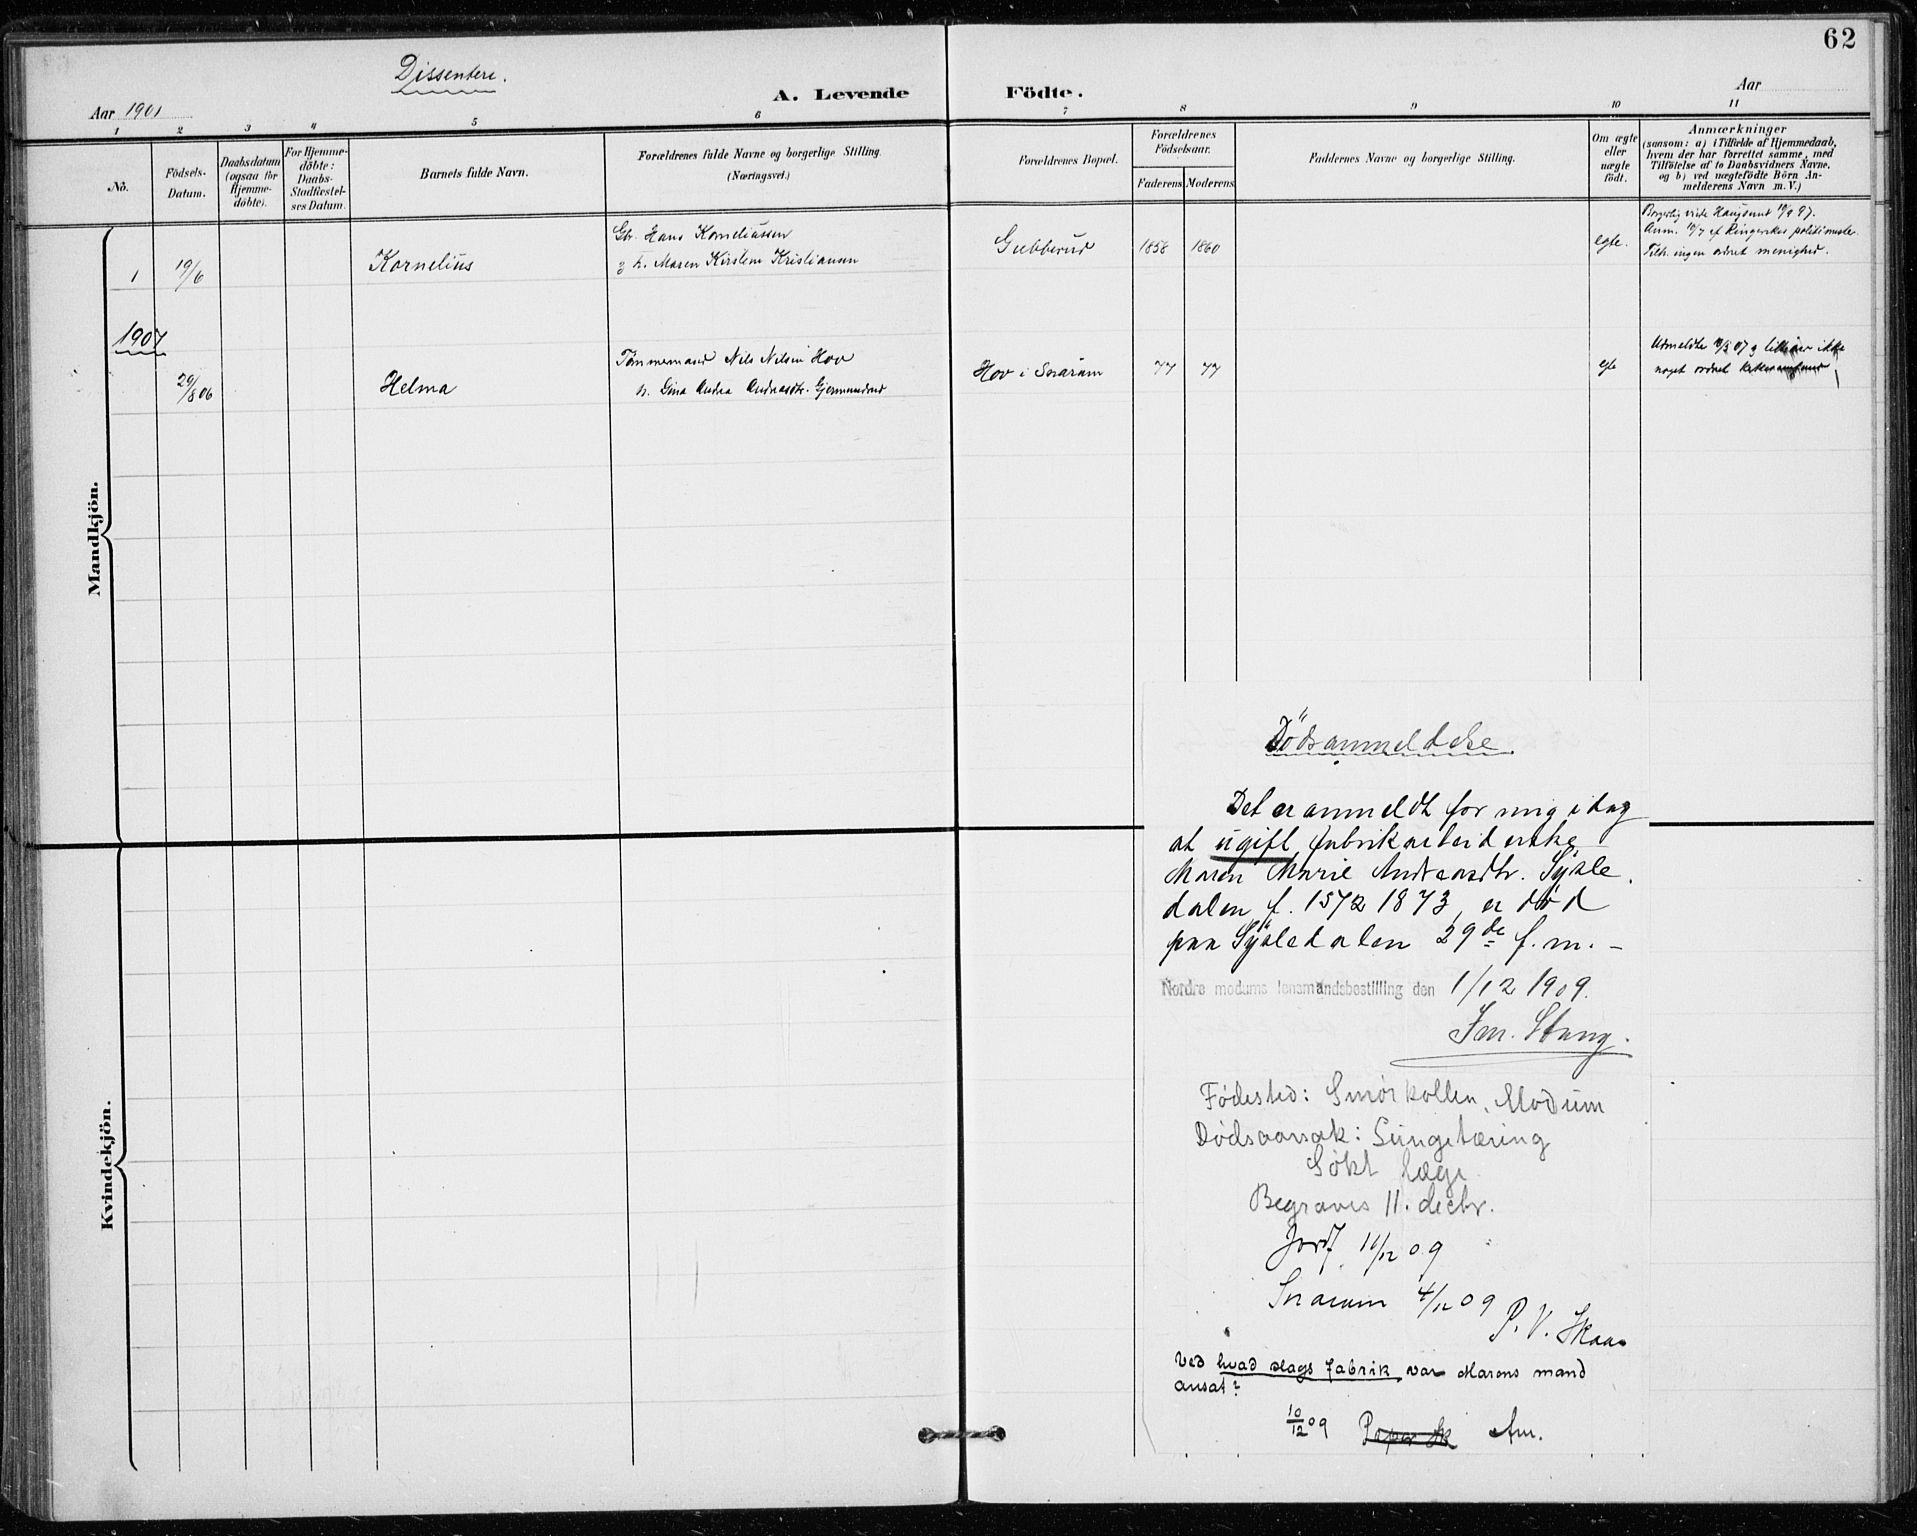 62
Dissentere.
Aar 1901
A. Levende Födte.
Aar
1 2 3 4 5 6 7 8 9 10 11
No.
Födsels-Datum.
Daabsdatum (ogsaa for Hjemme-döbte).
For Hjemme-döbte: Daabs-Stadfæstel-ses Datum.
Barnets fulde Navn.
Forældrenes fulde Navne og borgerlige Stilling. (Næringsvei.)
Forældrenes Bopæl.
Forældrenes Födselsaar.
Faderens Moderens
Faddernes Navne og borgerlige Stilling.
Om ægte eller uægte födt.
Anmærkninger
(saasom: a) i Tilfælde af Hjemmedaab,
hvem der har forrettet samme, med
Tilföielse af to Daabsvidners Navne,
og b) ved uægtefödte Börn An-
melderens Navn m. V.)
Mandkjön.
1 19/6 Kornelius
Gbr. Hans Korneliussen
g h. Maren Kirstine Kristiansen
Gubberud 1858 1860 egte.
Anm. 10/7 af Ringerikes politimester.
Tilh. ingen ordnet menighed.
1907
29/8 06 Helma
Tømmermand Nils Nilsen Hov
h. Gina Andrea Andreasdtr. Gjermundrud
Hov i Snarum 77 77 egte
noget ordnet
Kvindekjön.
Dödsanmeldelse.
Det er anmeldt for mig idag
at ugift fabrikarbeiderske
Maren Marie Andreasdtr. Sysle
dalen, f. 15/2 1873, er død
paa Sysledalen 29de f. m. –
Nordre modums lensmandsbestilling den 1/12 1909.
Fm. Stang.
Fødested: Smørkollen, Modum
Dødsaarsak: Lungetæring
Søkt læge
Begraves 11. decbr.
Jordf. 11/12 09
Snarum 4/12 09
P. V. Skaar
Ved hvad slags fabrik var Marens mand
ansat?
10/12 09 Am.